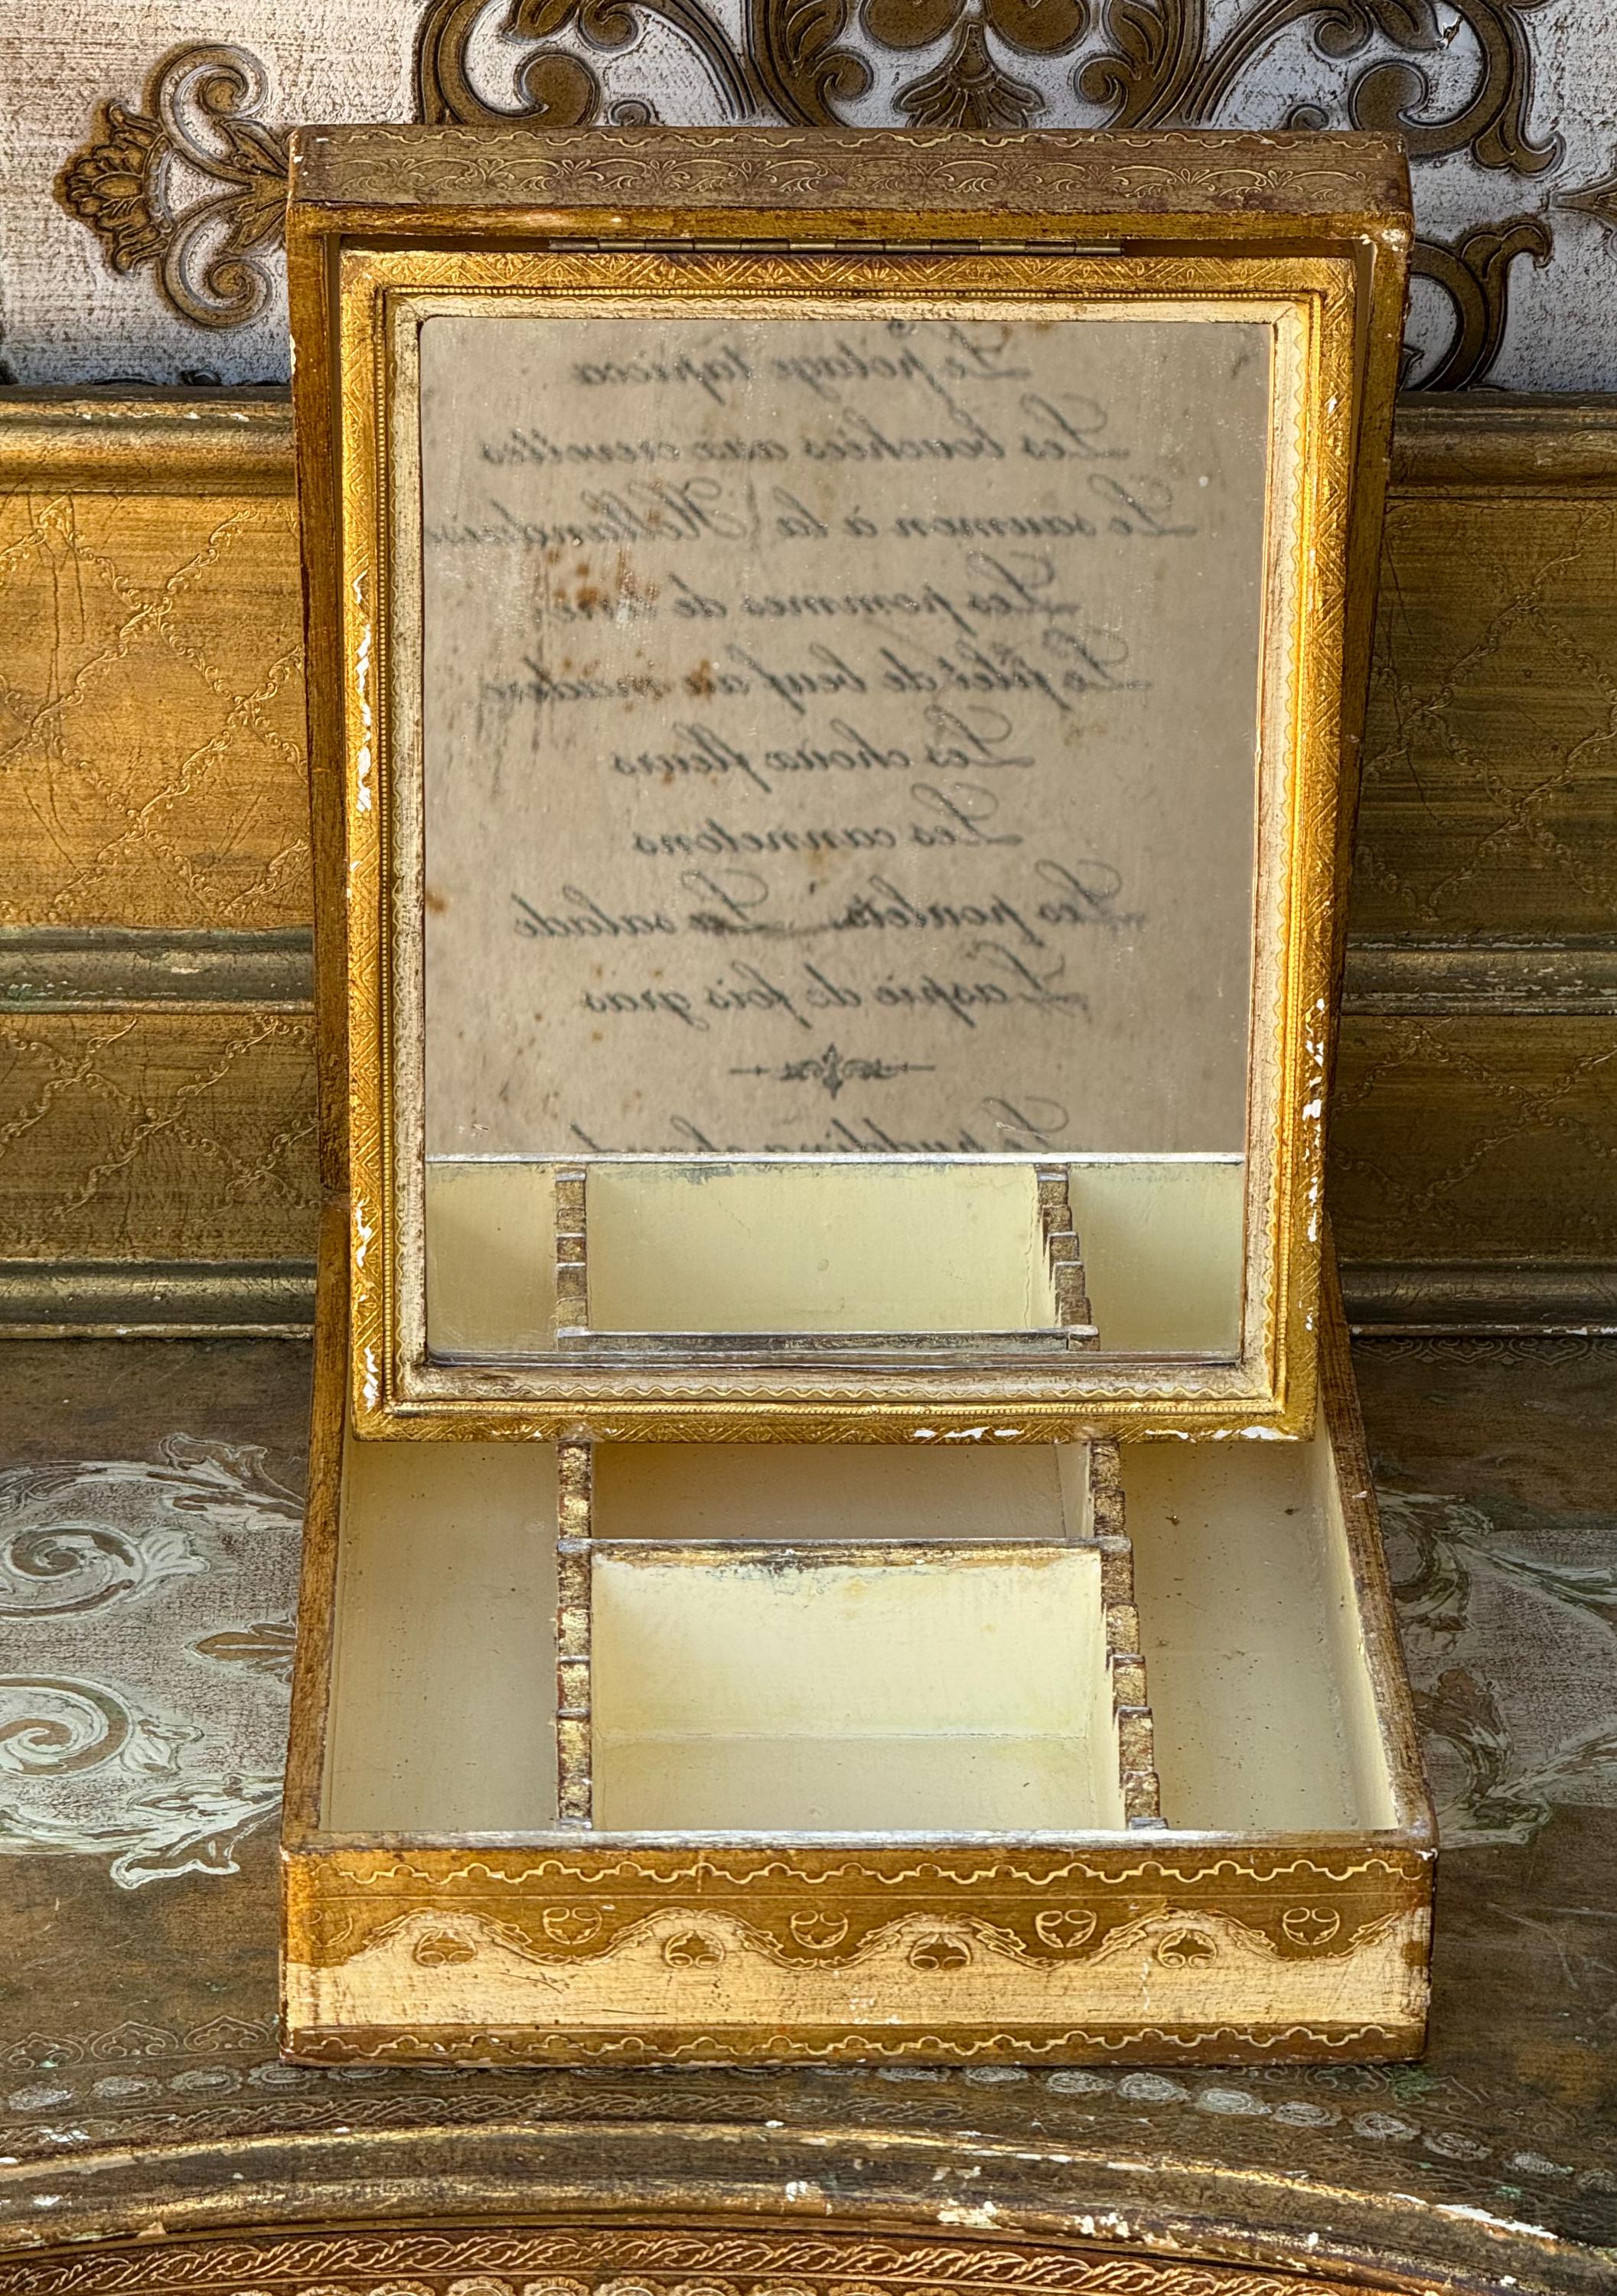 Le potage tapioca
Les bouchées aux crevettes
Le saumon à la Hollandaise
Les pommes de terre
Le filet de beuf au madère
Les choux fleurs
Les cannetons
Les poulets. La salade
L'aspic de fois gras
Le pudding chaud